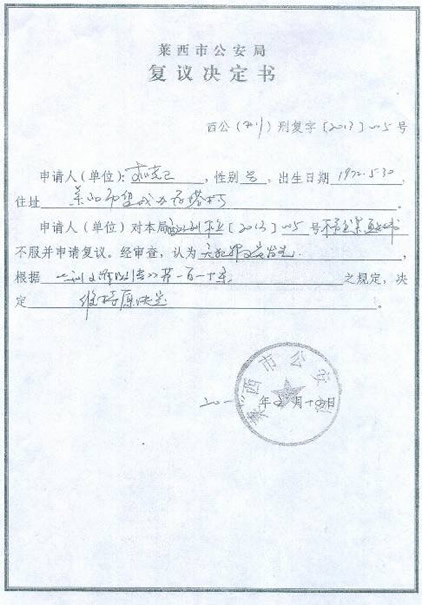 莱西市公安局
复议决定书
西公（刑）刑复字〔2013〕005号
申请人（单位）： 性别 ，出生日期 1972.5.30
住址 莱西市
申请人（单位）对本局 〔2013〕005号不予立案通知书
不服并申请复议。经审查，认为 无犯罪事实发生
根据 《刑事诉讼法》第一百一十条 之规定，决
定 维持原决定
莱西市公安局
二〇一 年 月 日